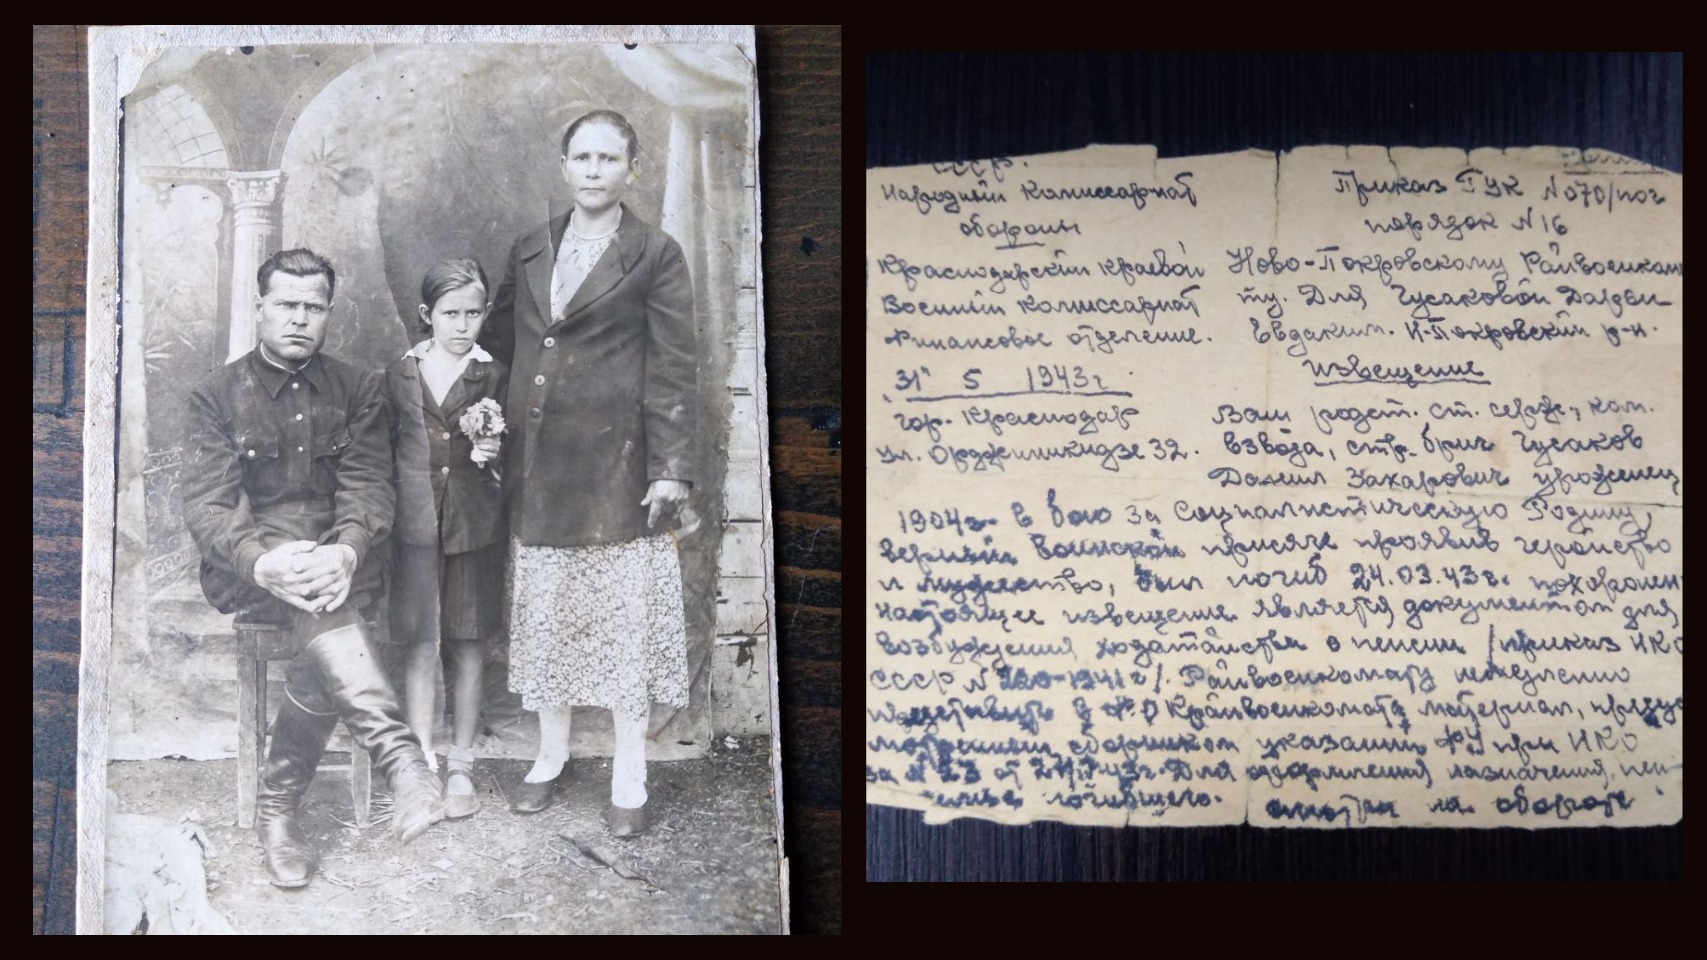 СССР.
Народный Комиссариат
обороны
Краснодарский краевой
Военный комиссариат
Финансовое отделение.
"31" 5 1943г.
гор. Краснодар
ул. Орджоникидзе 32.
Приказ ГУК №070/пог
порядок №16
Ново-Покровскому Райвоенком
ту. Для Гусаковой Дарьи
Евдаким. Н-Покровский р-н.
Извещение
Ваш родст. ст. серж., ком.
взвода, стр. бриг Гусаков
Данил Захарович уроженец
1904г. в бою за Социалистическую Родину,
верный воинской присяге проявив геройство
и мужество, был погиб 24.03.43г. похоронен
настоящее извещение является документом для
возбуждения ходатайства о пенсии /приказ НКО
СССР № 220-1941г/. Райвоенкомату немедленно
представить в Ф.О Крайвоенкомата материал, предус
мотренный сборником указаний ФУ при НКО
за №23 от Для оформления назначения пен-
погибшего. смотри на обороте